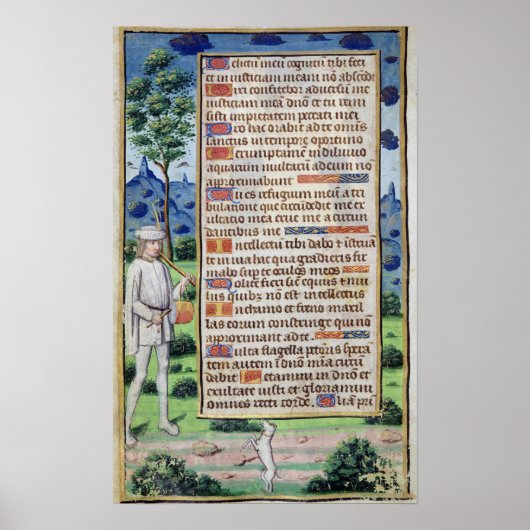 Delictum meū cognitum tibi feci
et in iusticiam meam nō abscōdi
Dixi confitebor adversum me
iusticiam meam dn̄o et tu remi
sisti impietatem peccati mei
Pro hac orabit ad te omīs
sanctus in tempore oportuno
Verumptamē in diluvio
aquarum multarū ad eum nō
approximabunt
Tu es refugium meum a tri
bulatione que circūdedit me ex
ultacio mea erue me a circun
dantibus me
Intellectū tibi dabo et īstruā
te in uia hac qua gradieris fir
mabo sup te oculos meos
Nolite fieri sicut equus et mu
lus quibȝ nō est intellectus
In chamo et freno maxil
las eorum constringe qui nō
approximant ad te
Multa flagella pctōris sperā
tem autem ī dn̄o mīa circū
dabit Letamini in dn̄o et
exultate iusti et gloriamini
omnes recti corde Gl̄ia patri